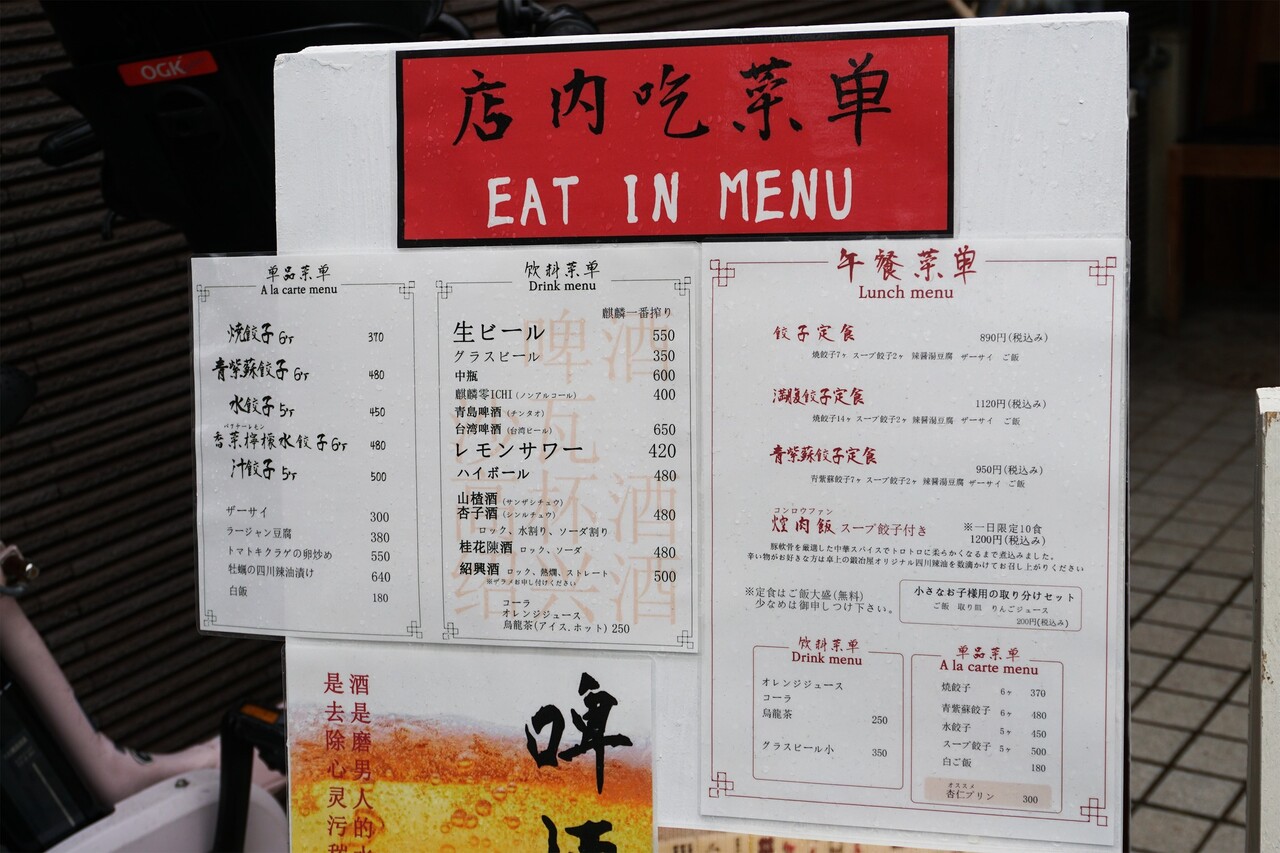 OGK
店内吃菜单
EAT IN MENU
单品菜单
A la carte menu
焼餃子 6ヶ 370
青紫蘇餃子 6ヶ 480
水餃子 5ヶ 450
パクチーレモン
香菜檸檬水餃子 6ヶ 480
汁餃子 5ヶ 500
ザーサイ 300
ラージャン豆腐 380
トマトキクラゲの卵炒め 550
牡蠣の四川辣油漬け 640
白飯 180
饮料菜单
Drink menu
麒麟一番搾り
生ビール 550
グラスビール 350
中瓶 600
麒麟零ICHI (ノンアルコール) 400
青島啤酒 (チンタオ)
台湾啤酒 (台湾ビール) 650
レモンサワー 420
ハイボール 480
山楂酒 (サンザシチュウ)
杏子酒 (シンルチュウ) 480
ロック、水割り、ソーダ割り
桂花陳酒 ロック、ソーダ 480
紹興酒 ロック、熱燗、ストレート 500
※ザラメお申し付けください
コーラ
オレンジジュース
烏龍茶(アイス.ホット) 250
午餐菜单
Lunch menu
餃子定食 890円(税込み)
焼餃子7ヶ スープ餃子2ヶ 辣醤湯豆腐 ザーサイ ご飯
満腹餃子定食 1120円(税込み)
焼餃子14ヶ スープ餃子2ヶ 辣醤湯豆腐 ザーサイ ご飯
青紫蘇餃子定食 950円(税込み)
青紫蘇餃子7ヶ スープ餃子2ヶ 辣醤湯豆腐 ザーサイ ご飯
コンロウファン
焢肉飯 スープ餃子付き ※一日限定10食
1200円(税込み)
豚軟骨を厳選した中華スパイスでトロトロに柔らかくなるまで煮込みました。
辛い物がお好きな方は卓上の鍛冶屋オリジナル四川辣油を数滴かけてお召し上がりください
※定食はご飯大盛(無料)
少なめは御申しつけ下さい。
小さなお子様用の取り分けセット
ご飯 取り皿 りんごジュース
200円(税込み)
饮料菜单
Drink menu
オレンジジュース
コーラ
烏龍茶 250
グラスビール小 350
单品菜单
A la carte menu
焼餃子 6ヶ 370
青紫蘇餃子 6ヶ 480
水餃子 5ヶ 450
スープ餃子 5ヶ 500
白ご飯 180
オススメ
杏仁プリン 300
酒是磨男人的
是去除心灵污
啤